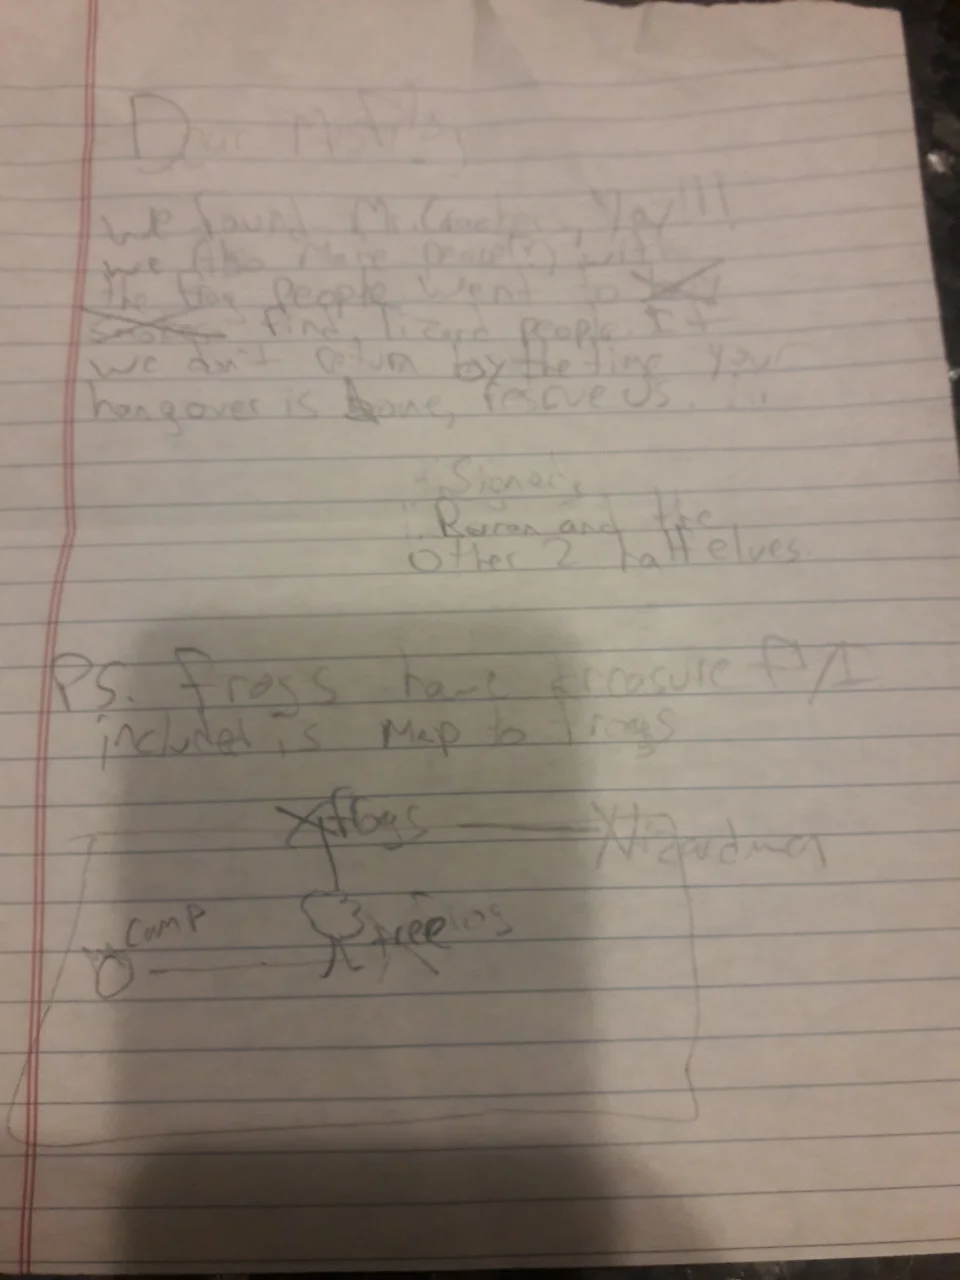 Dear
We found Mr. Yay!!!
we Also
the frog people went to
find lizard people. If
we don't return by the time your
hangover is gone, rescue us.
Signed,
and the
other 2 half elves.
PS. frogs have
included is Map to frogs
X frogs
X lizardmen
camp
tree